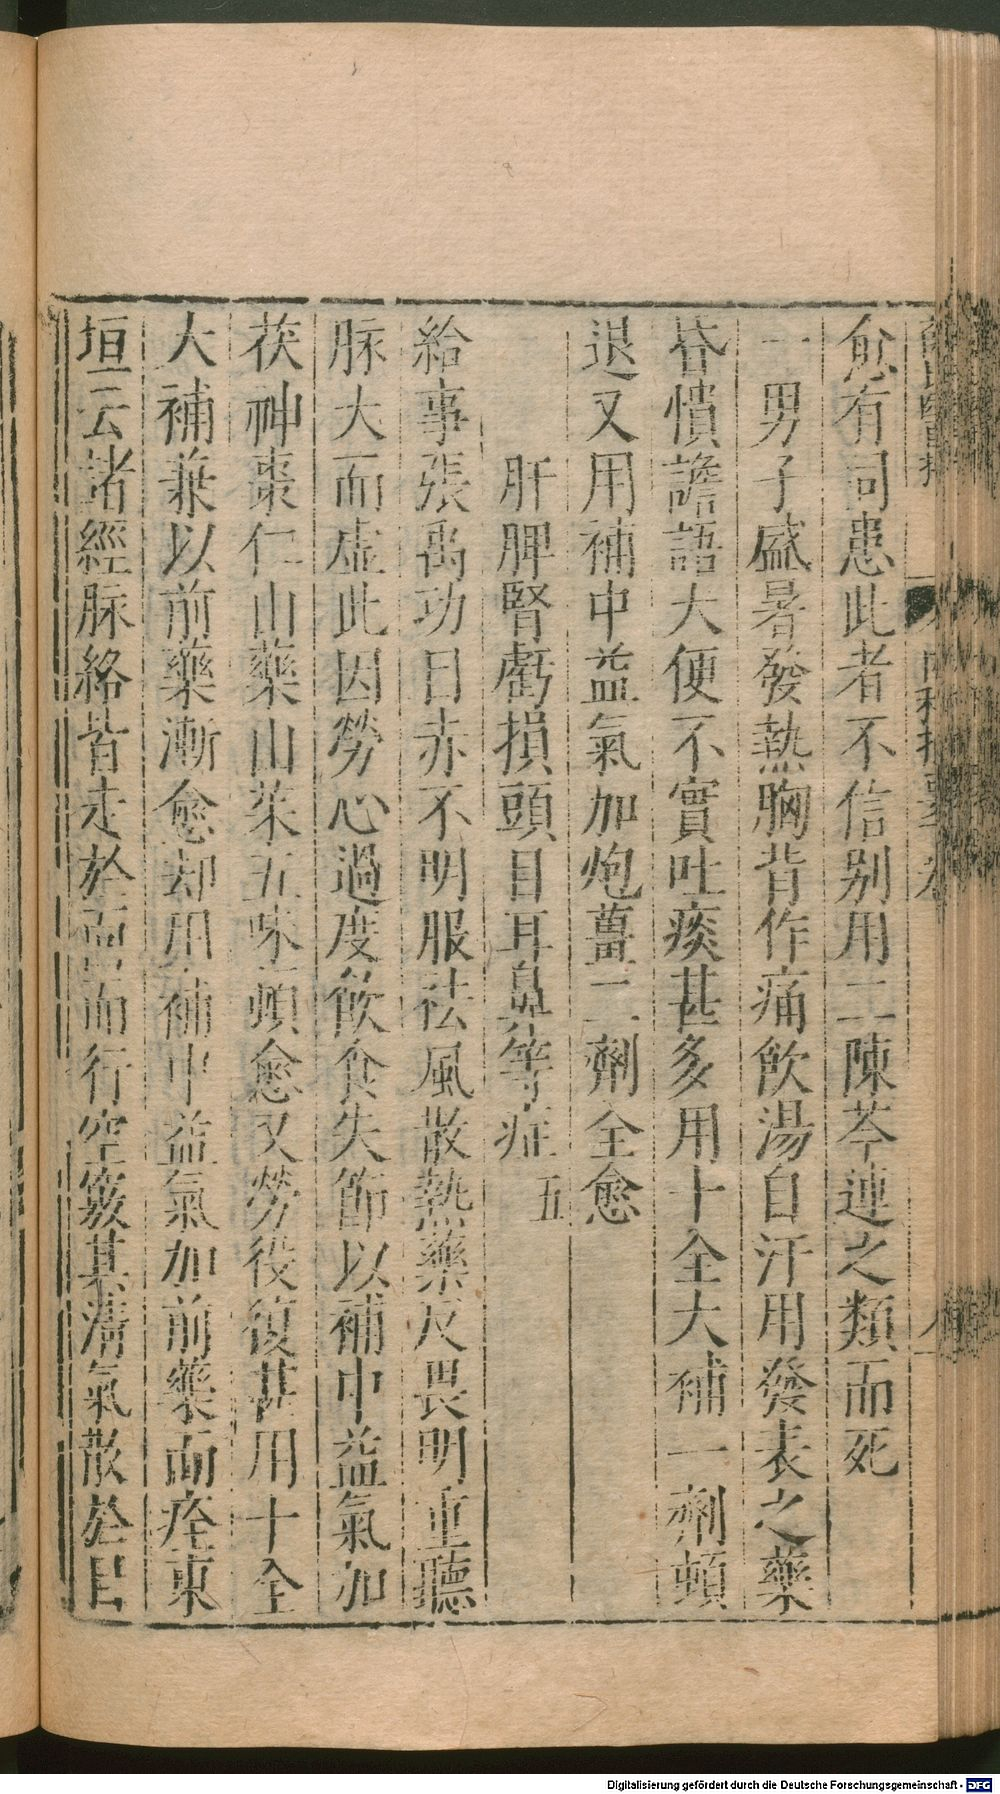 愈有同患此者不信别用二陳芩連之類而死
一男子感暑發熱胸背作痛飲湯自汗用發表之藥
昏憒譫語大便不實吐痰甚多用十全大補一劑頓
退又用補中益氣加炮薑二劑全愈
肝脾腎虧損頭目耳鼻等症 五
給事張禹功目赤不明服祛風散熱藥反畏明重聽
脉大而虛此因勞心過度飲食失節以補中益氣加
茯神棗仁山藥山茱五味頓愈又勞役復甚用十全
大補兼以前藥漸愈却用補中益氣加前藥而痊東
垣云諸經脉絡皆走於面而行空竅其清氣散於目
Digitalisierung gefördert durch die Deutsche Forschungsgemeinschaft - DFG